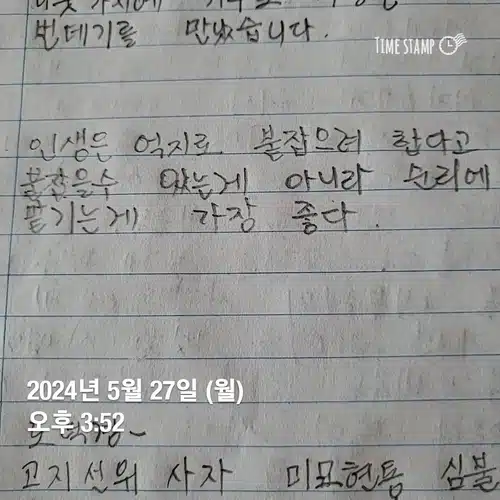 번데기를 만났습니다.
TIME STAMP
인생은 억지로 붙잡으려 합다고
붙잡을수 있는게 아니라 순리에
맡기는게 가장 좋다.
2024년 5월 27일 (월)
오후 3:52
고지선위 사자 미모현통 심불